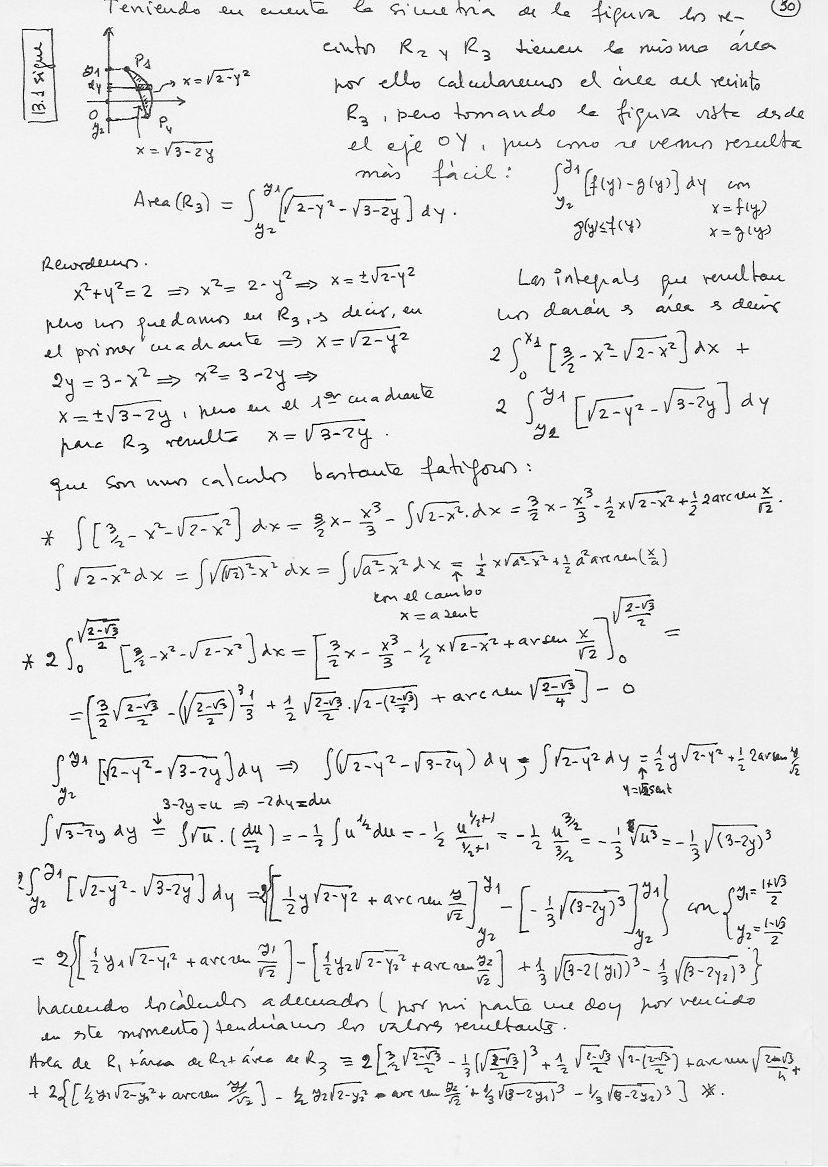 Teniendo en cuenta la simetría de la figura los re- (30)
13.1 sigue
cintos R₂ y R₃ tienen la misma área
por ello calcularemos el área del recinto
R₃, pero tomando la figura vista desde
el eje OY, pues como se vemos resulta
más fácil: ∫_{y₂}^{y₁} [f(y)-g(y)] dy con
g(y)≤f(y) x=f(y)
x=g(y)
y₁ P₁ → x=√(2-y²)
0
y₂ P₄
x=√(3-2y)
Area(R₃) = ∫_{y₂}^{y₁} [√(2-y²) - √(3-2y)] dy.
Recordemos.
x²+y²=2 ⇒ x²=2-y² ⇒ x=±√(2-y²)
pero nos quedamos en R₃, es decir, en
el primer cuadrante ⇒ x=√(2-y²)
2y=3-x² ⇒ x²=3-2y ⇒
x=±√(3-2y), pero en el 1er cuadrante
para R₃ resulta x=√(3-2y).
Las integrales que resultan
nos darán s área s decir
2 ∫_0^{x₁} [3/2 - x² - √(2-x²)] dx +
2 ∫_{y₂}^{y₁} [√(2-y²) - √(3-2y)] dy
que son unos calculos bastante fatigosos:
* ∫ [3/2 - x² - √(2-x²)] dx = 3/2 x - x³/3 - ∫√(2-x²).dx = 3/2 x - x³/3 - 1/2 x√(2-x²) + 1/2 2 arc sen x/√2.
∫ √(2-x²) dx = ∫√((√2)²-x²) dx = ∫√(a²-x²) dx = 1/2 x√(a²-x²) + 1/2 a² arc sen(x/a)
↑
con el cambo
x = a sent
* 2 ∫_0^{√((2-√3)/2)} [3/2 - x² - √(2-x²)] dx = [3/2 x - x³/3 - 1/2 x√(2-x²) + arsen x/√2]_0^{√((2-√3)/2)} =
= [3/2 √((2-√3)/2) - (√((2-√3)/2))³ 1/3 + 1/2 √((2-√3)/2) . √(2-((2-√3)/2)) + arc sen √((2-√3)/4)] - 0
∫_{y₂}^{y₁} [√(2-y²) - √(3-2y)] dy ⇒ ∫(√(2-y²) - √(3-2y)) dy; ∫√(2-y²) dy = 1/2 y√(2-y²) + 1/2 2 arsen y/√2
3-2y=u ⇒ -2dy=du y=√2sent
∫√(3-2y) dy = ∫√u . (du/-2) = -1/2 ∫u^{1/2} du = -1/2 u^{1/2+1}/(1/2+1) = -1/2 u^{3/2}/(3/2) = -1/3 √u³ = -1/3 √(3-2y)³
2∫_{y₂}^{y₁} [√(2-y²) - √(3-2y)] dy = 2{[1/2 y√(2-y²) + arc sen y/√2]_{y₂}^{y₁} - [-1/3 √(3-2y)³]_{y₂}^{y₁}} con {y₁=(1+√3)/2
y₂=(1-√3)/2
= 2{[1/2 y₁√(2-y₁²) + arcsen y₁/√2] - [1/2 y₂√(2-y₂²) + arcsen y₂/√2] + 1/3 √(3-2(y₁))³ - 1/3 √(3-2y₂)³}
haciendo los cálculos adecuados (por mi parte me doy por vencido
en este momento) tendríamos los valores resultants.
Area de R₁ + área de R₂ + área de R₃ = 2[3/2 √((2-√3)/2) - 1/3 (√((2-√3)/2))³ + 1/2 √((2-√3)/2) √(2-((2-√3)/2)) + arc sen √((2-√3)/4) +
+ 2{[1/2 y₁√(2-y₁²) + arcsen y₁/√2] - 1/2 y₂√(2-y₂²) - arc sen y₂/√2 + 1/3 √(3-2y₁)³ - 1/3 √(3-2y₂)³] *.